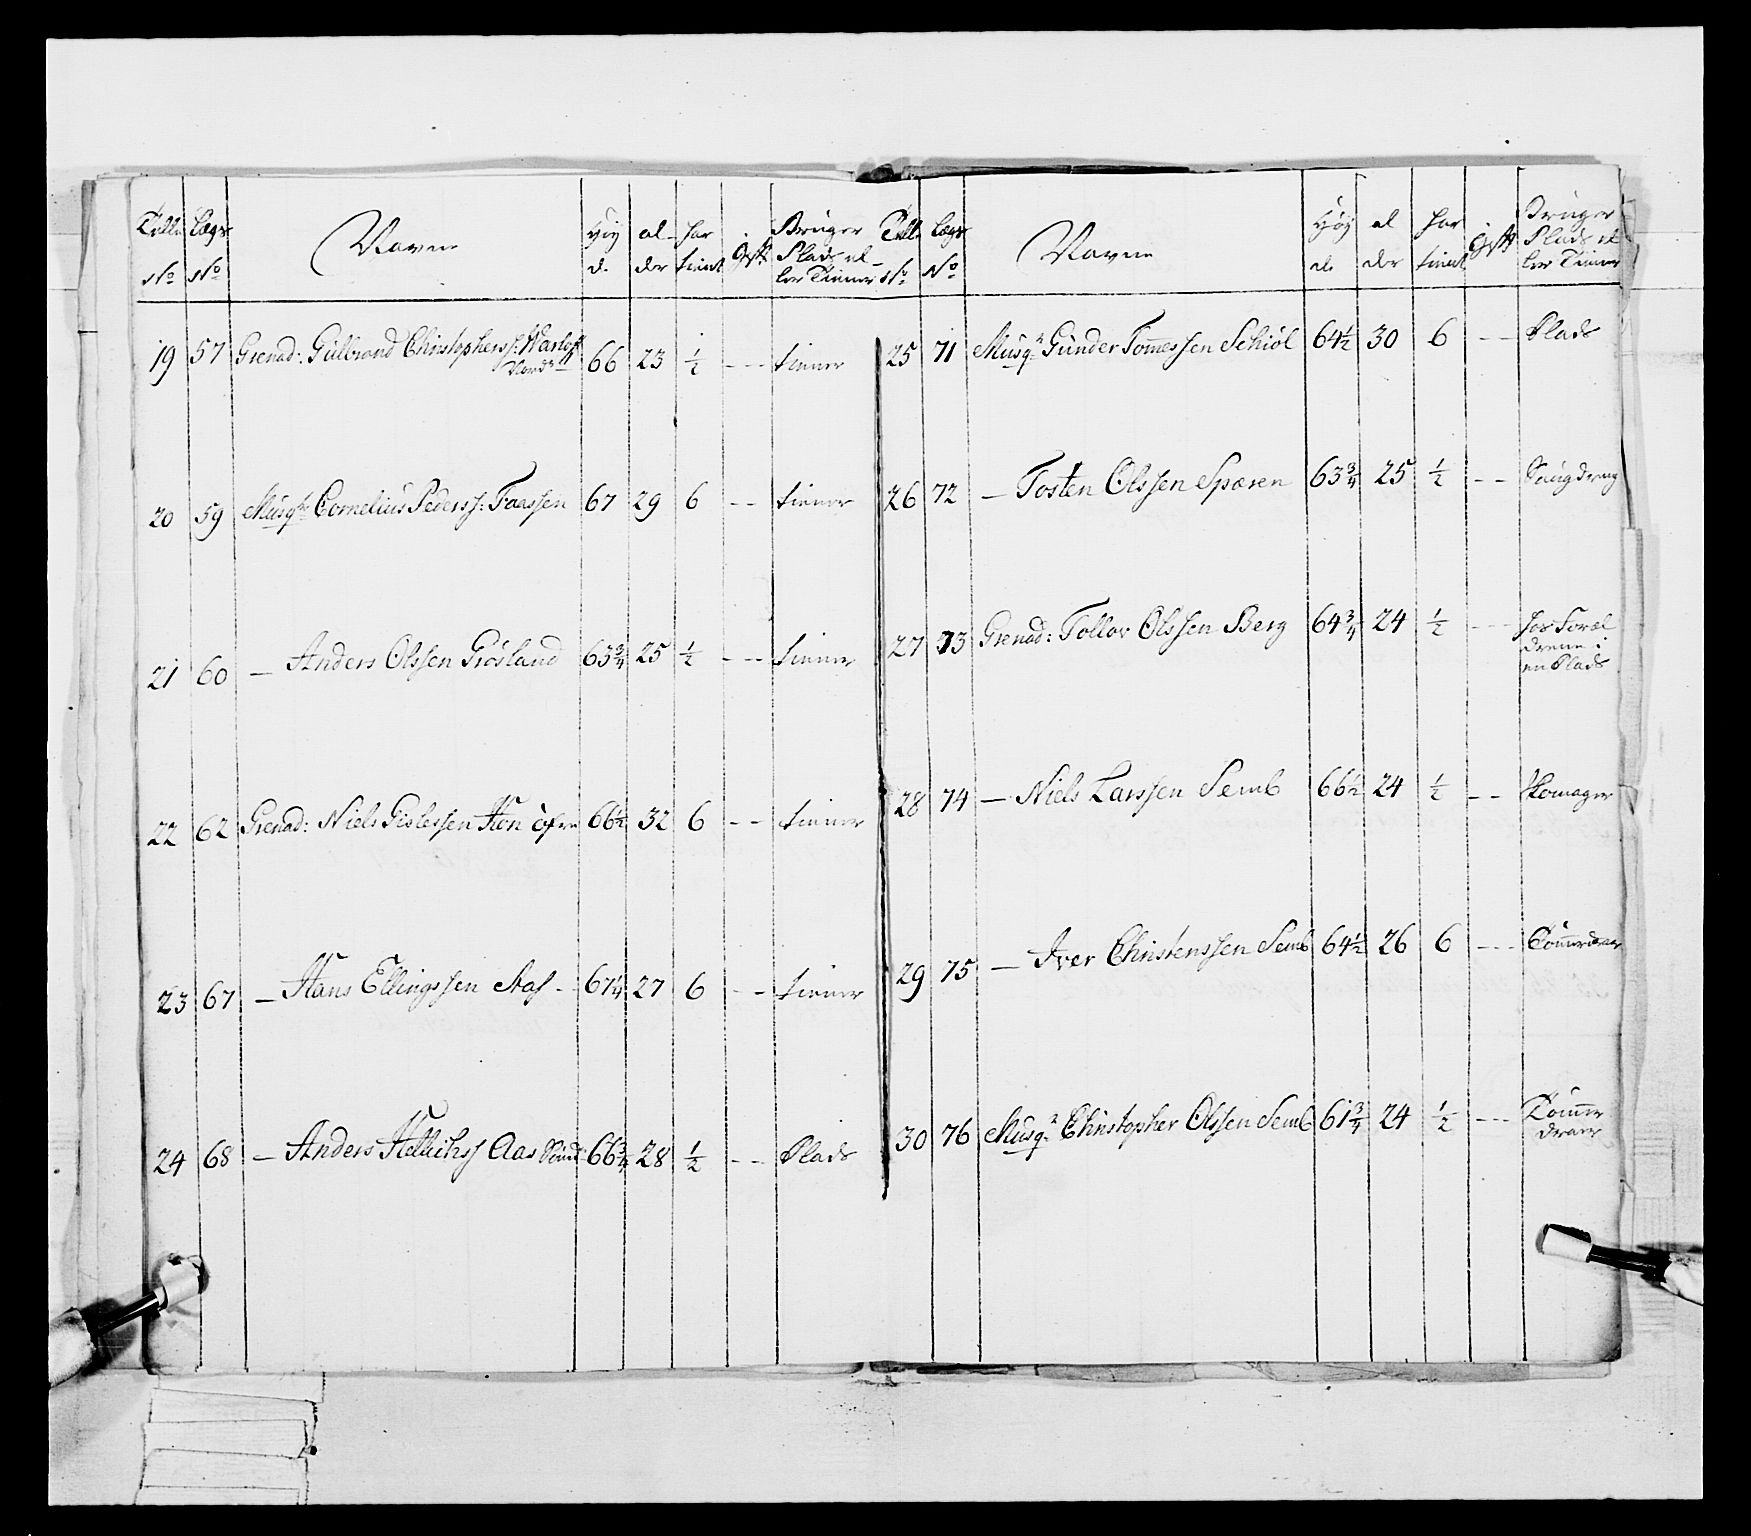 Tall No Lægs No Navne Høy d. al der har tient Gift Bruger Plads el ler Tiener
19 57 Grenad: Gulbrand Christopherss: Warlof Nord: 66 23 ½ - - tiener
20 59 Musqr Cornelius Peders: Faassen 67 29 6 - - tiener
21 60 — Anders Olssen Grosland 63¾ 25 ½ - - tiener
22 62 Grenad: Niels Gislessen Kon öfre 66½ 32 6 - - tiener
23 67 — Hans Ellingssen Aas - 67¼ 27 6 - - tiener
24 68 — Anders Hellichss Aas Sönd: 66¾ 28 ½ - - Plads
Tall No Lægs No Navne Høy d. al der har tient Gift Bruger Plads el ler Tiener
25 71 Musqr Gunder Tommessen Schiöl 64½ 30 6 - - Plads
26 72 — Tosten Olssen Sparen 63¾ 25 ½ - - Saugdreng
27 73 Grenad: Tollov Olssen Berg 64¾ 24 ½ - - hos Foræl
drene i
en Plads
28 74 — Niels Larssen Semb 66½ 24 ½ - - Skomager
29 75 — Iver Christenssen Semb 64½ 26 6 - - -
30 76 Musqr Christopher Olssen Semb 61¾ 24 ½ - - - Tömmer